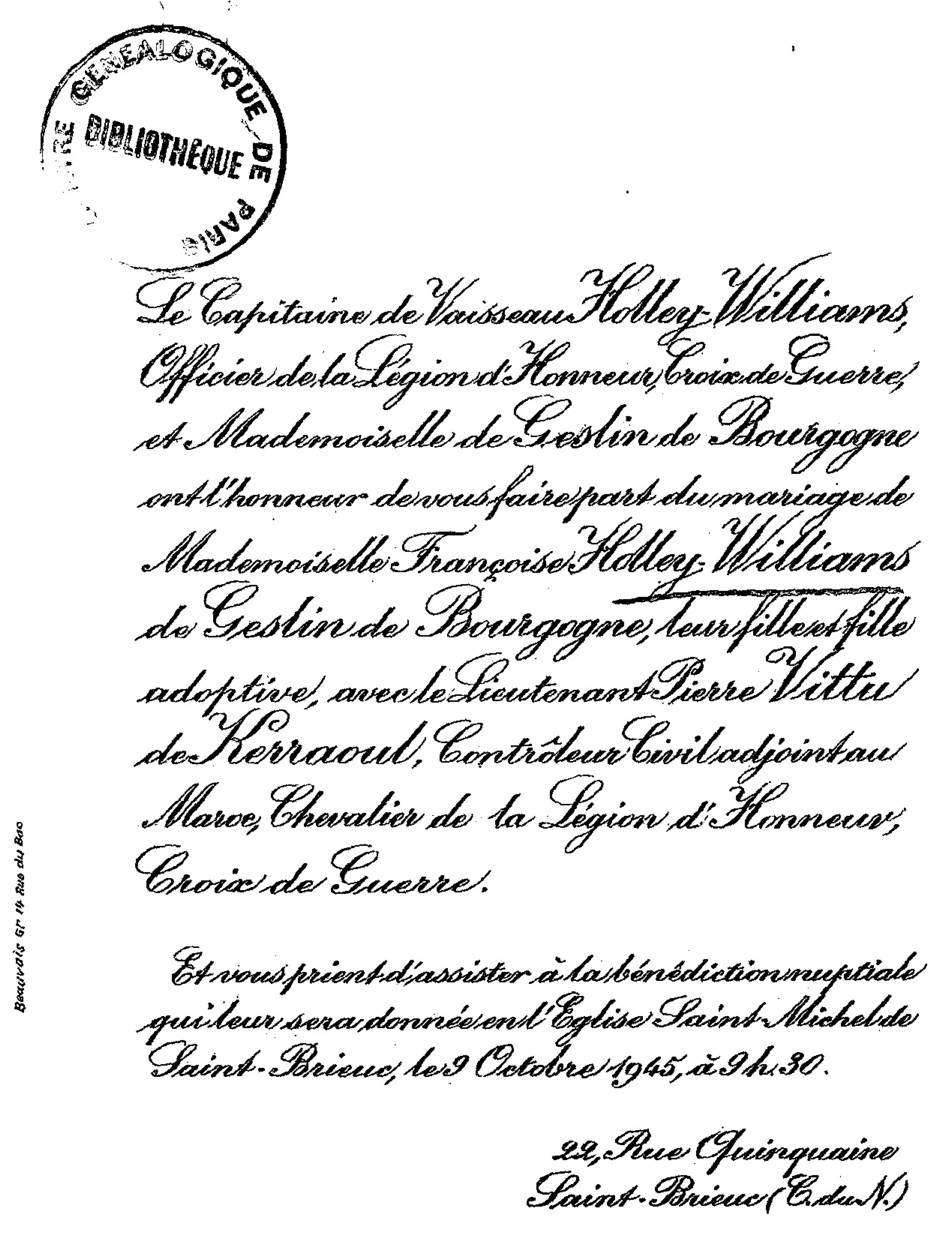 GENEALOGIQUE DE PARIS
BIBLIOTHÈQUE
Le Capitaine de Vaisseau Holley-Williams,
Officier de la Légion d'Honneur, Croix de Guerre,
et Mademoiselle de Geslin de Bourgogne
ont l'honneur de vous faire part du mariage de
Mademoiselle Françoise Holley-Williams
de Geslin de Bourgogne, leur fille et fille
adoptive, avec le Lieutenant Pierre Vittu
de Kerraoul, Contrôleur Civil adjoint au
Maroc, Chevalier de la Légion d'Honneur,
Croix de Guerre.
Et vous prient d'assister à la bénédiction nuptiale
qui leur sera donnée en l'Eglise Saint-Michel de
Saint-Brieuc, le 9 Octobre 1945, à 9 h. 30.
22, Rue Quinquaine
Saint-Brieuc (C. du N.)
Beauvais Gr 14 Rue du Bac